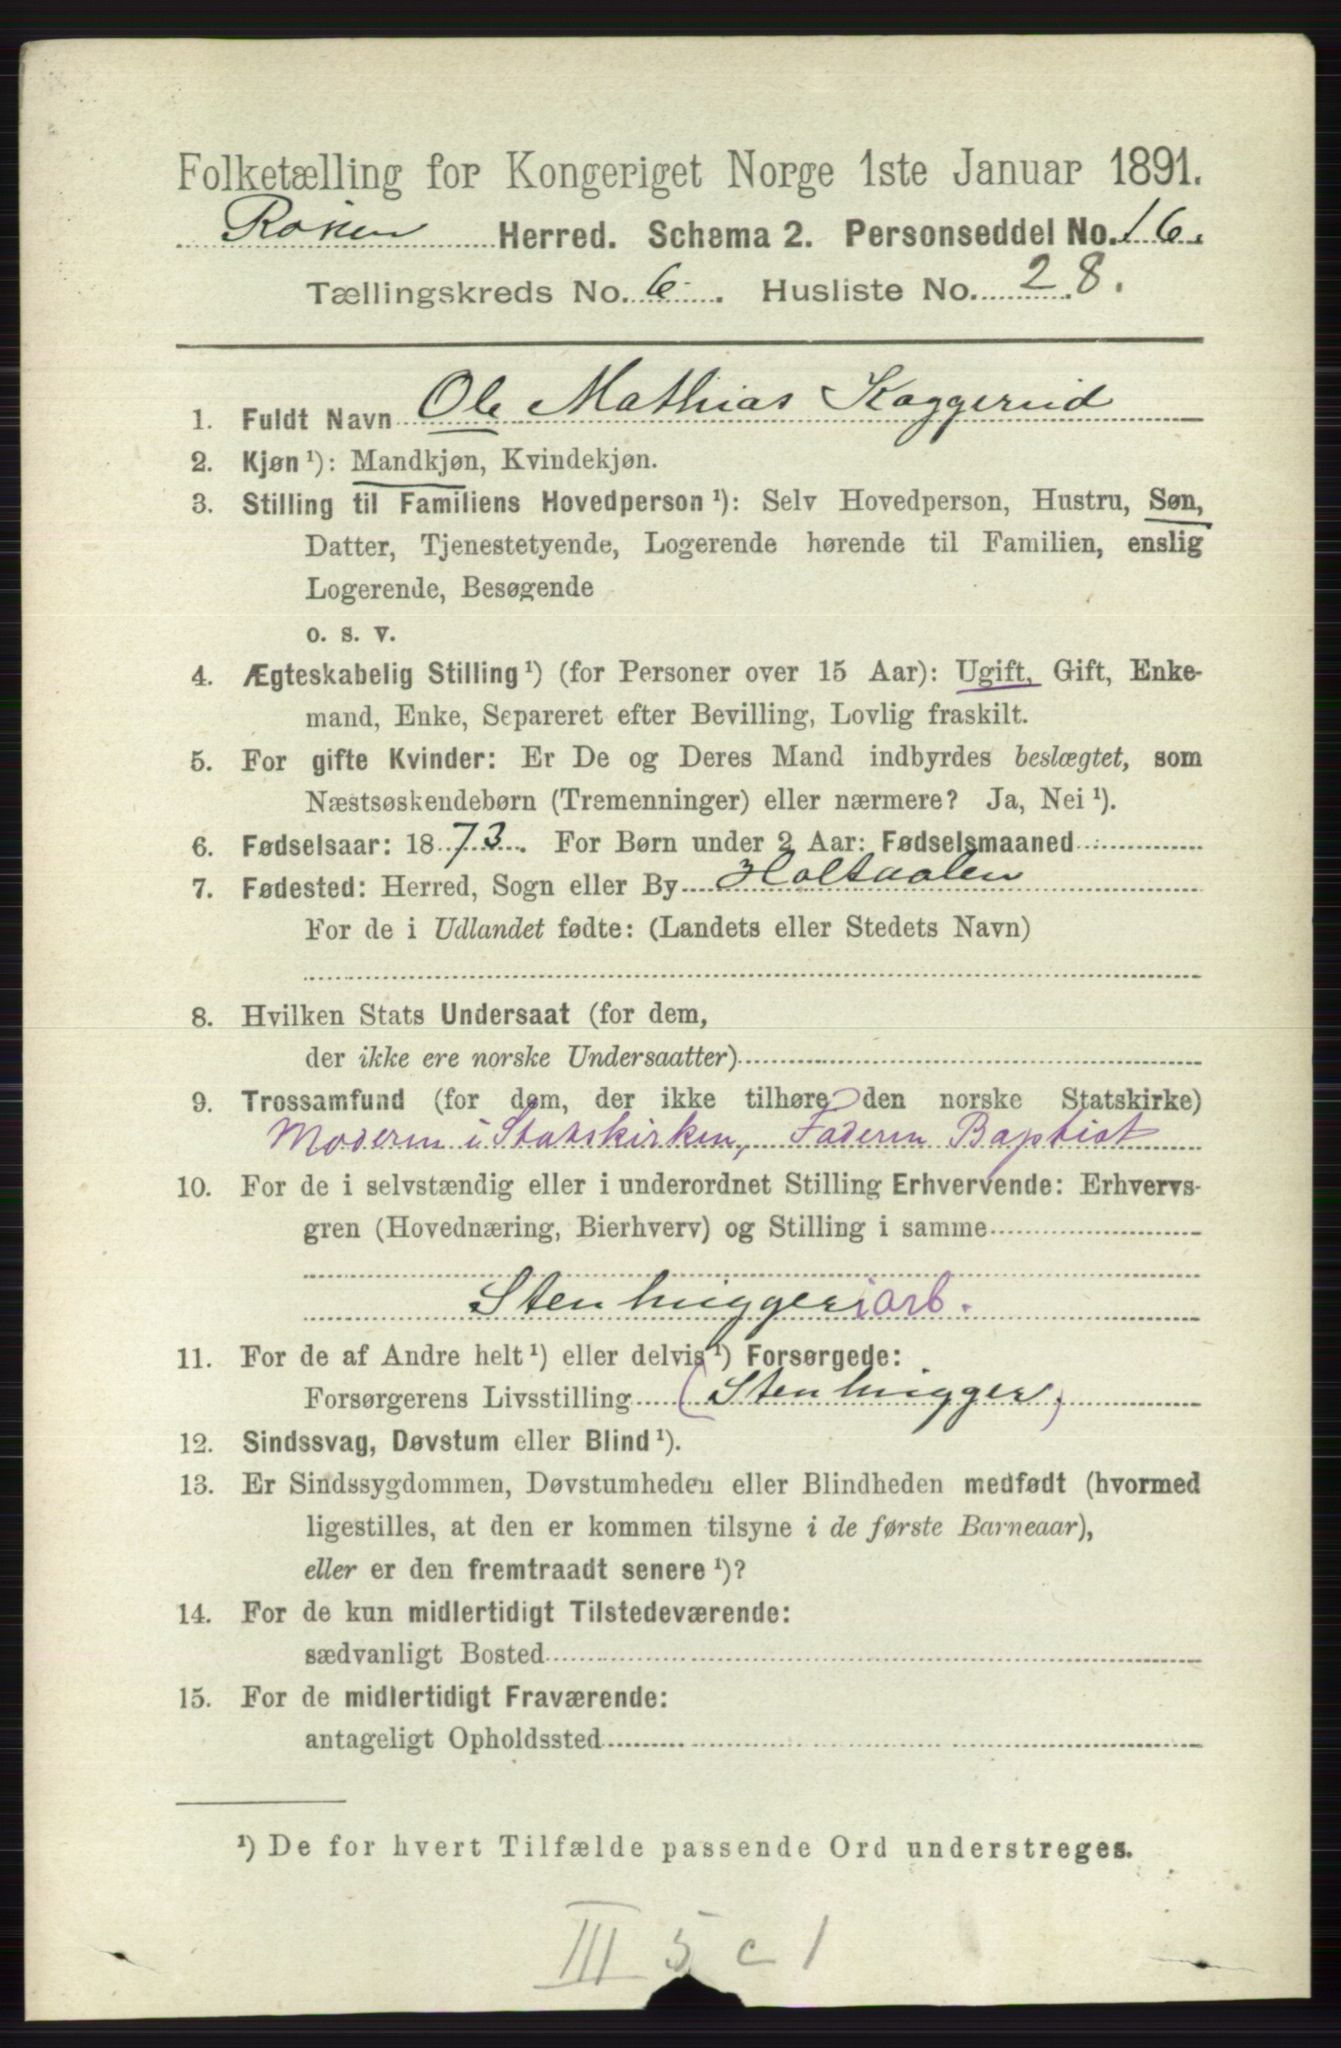 Folketælling for Kongeriget Norge 1ste Januar 1891.
Røken Herred. Schema 2. Personseddel No. 16.
Tællingskreds No. 6. Husliste No. 28.
1. Fuldt Navn Ole Mathias Kaggerud
2. Kjøn ¹): Mandkjøn, Kvindekjøn.
3. Stilling til Familiens Hovedperson ¹): Selv Hovedperson, Hustru, Søn,
Datter, Tjenestetyende, Logerende hørende til Familien, enslig
Logerende, Besøgende
o. s. v.
4. Ægteskabelig Stilling ¹) (for Personer over 15 Aar): Ugift, Gift, Enke-
mand, Enke, Separeret efter Bevilling, Lovlig fraskilt.
5. For gifte Kvinder: Er De og Deres Mand indbyrdes beslægtet, som
Næstsøskendebørn (Tremenninger) eller nærmere? Ja, Nei ¹).
6. Fødselsaar: 1873. For Børn under 2 Aar: Fødselsmaaned
7. Fødested: Herred, Sogn eller By Holtaalen
For de i Udlandet fødte: (Landets eller Stedets Navn)
8. Hvilken Stats Undersaat (for dem,
der ikke ere norske Undersaatter)
9. Trossamfund (for dem, der ikke tilhøre den norske Statskirke)
Moderen i Statskirken, Faderen Baptist
10. For de i selvstændig eller i underordnet Stilling Erhvervende: Erhvervs-
gren (Hovednæring, Bierhverv) og Stilling i samme
Stenhuggeriarb.
11. For de af Andre helt ¹) eller delvis ¹) Forsørgede:
Forsørgerens Livsstilling (Stenhugger)
12. Sindssvag, Døvstum eller Blind ¹).
13. Er Sindssygdommen, Døvstumheden eller Blindheden medfødt (hvormed
ligestilles, at den er kommen tilsyne i de første Barneaar),
eller er den fremtraadt senere ¹)?
14. For de kun midlertidigt Tilstedeværende:
sædvanligt Bosted
15. For de midlertidigt Fraværende:
antageligt Opholdssted
¹) De for hvert Tilfælde passende Ord understreges.
III 5 c 1